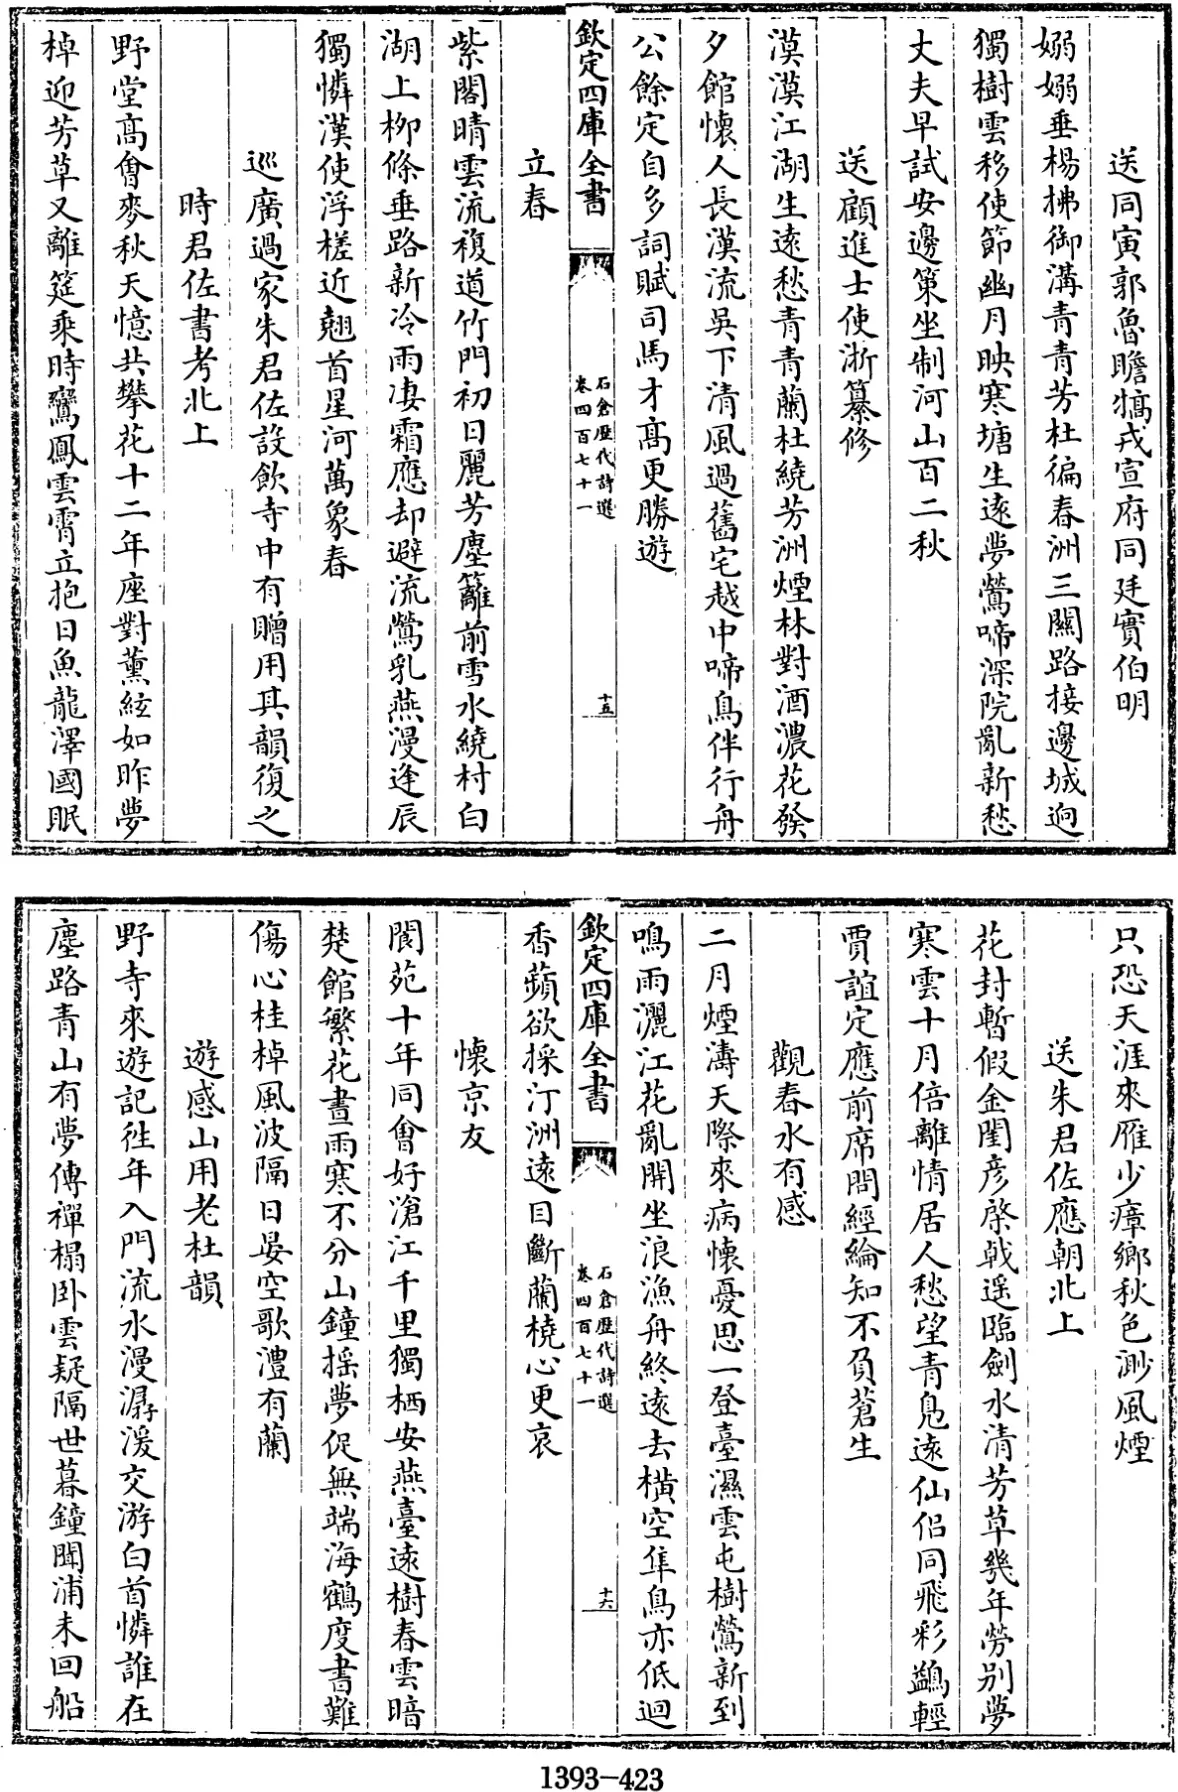 送同寅郭魯瞻犒戎宣府同廷實伯明
嫋嫋垂楊拂御溝青青芳杜徧春洲三關路接邊城迥
獨樹雲移使節幽月映寒塘生遠夢鶯啼深院亂新愁
丈夫早試安邊策坐制河山百二秋
送顧進士使浙纂修
漠漠江湖生遠愁青青蘭杜繞芳洲煙林對酒濃花發
夕館懷人長漢流吳下清風過舊宅越中啼鳥伴行舟
公餘定自多詞賦司馬才高更勝遊
欽定四庫全書
石倉歷代詩選
卷四百七十一
十五
立春
紫閣晴雲流複道竹門初日麗芳塵籬前雪水繞村白
湖上柳條垂路新冷雨凄霜應却避流鶯乳燕漫逢辰
獨憐漢使浮槎近翹首星河萬象春
巡廣過家朱君佐設飲寺中有贈用其韻復之
時君佐書考北上
野堂高會麥秋天憶共攀花十二年座對薰絃如昨夢
棹迎芳草又離筵乘時鸞鳳雲霄立抱日魚龍澤國眠
只恐天涯來雁少瘴鄉秋色渺風煙
送朱君佐應朝北上
花封暫假金閨彦棨戟遥臨劍水清芳草幾年勞别夢
寒雲十月倍離情居人愁望青鳬遠仙侣同飛彩鷁輕
賈誼定應前席問經綸知不負蒼生
觀春水有感
二月煙濤天際來病懷憂思一登臺濕雲屯樹鶯新到
鳴雨灑江花亂開坐浪漁舟終遠去橫空隼鳥亦低迴
欽定四庫全書
石倉歷代詩選
卷四百七十一
十六
香蘋欲採汀洲遠目斷蘭橈心更哀
懷京友
閬苑十年同會好滄江千里獨栖安燕臺遠樹春雲暗
楚館繁花晝雨寒不分山鐘摇夢促無端海鶴度書難
傷心桂棹風波隔日晏空歌澧有蘭
遊感山用老杜韻
野寺來遊記徃年入門流水漫潺湲交游白首憐誰在
塵路青山有夢傳禪榻卧雲疑隔世暮鐘聞浦未回船
1393-423